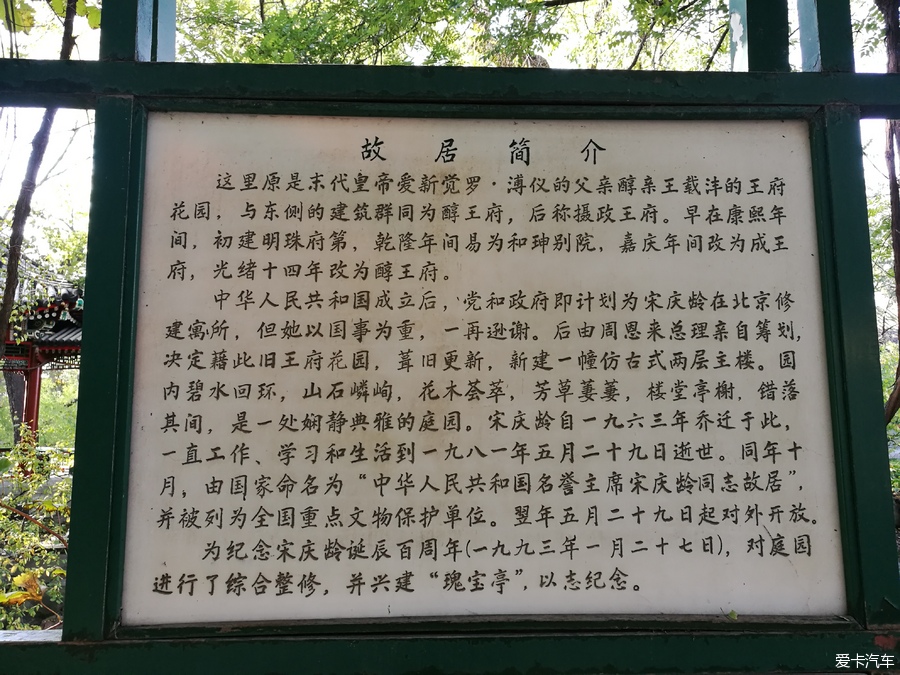 故居简介
这里原是末代皇帝爱新觉罗·溥仪的父亲醇亲王载沣的王府
花园，与东侧的建筑群同为醇王府，后称摄政王府。早在康熙年
间，初建明珠府第，乾隆年间易为和珅别院，嘉庆年间改为成王
府，光绪十四年改为醇王府。
中华人民共和国成立后，党和政府即计划为宋庆龄在北京修
建寓所，但她以国事为重，一再逊谢。后由周恩来总理亲自筹划，
决定藉此旧王府花园，葺旧更新，新建一幢仿古式两层主楼。园
内碧水回环，山石嶙峋，花木荟萃，芳草萋萋，楼堂亭榭，错落
其间，是一处娴静典雅的庭园。宋庆龄自一九六三年乔迁于此，
一直工作、学习和生活到一九八一年五月二十九日逝世。同年十
月，由国家命名为“中华人民共和国名誉主席宋庆龄同志故居”，
并被列为全国重点文物保护单位。翌年五月二十九日起对外开放。
为纪念宋庆龄诞辰百周年(一九九三年一月二十七日)，对庭园
进行了综合整修，并兴建“瑰宝亭”，以志纪念。
爱卡汽车